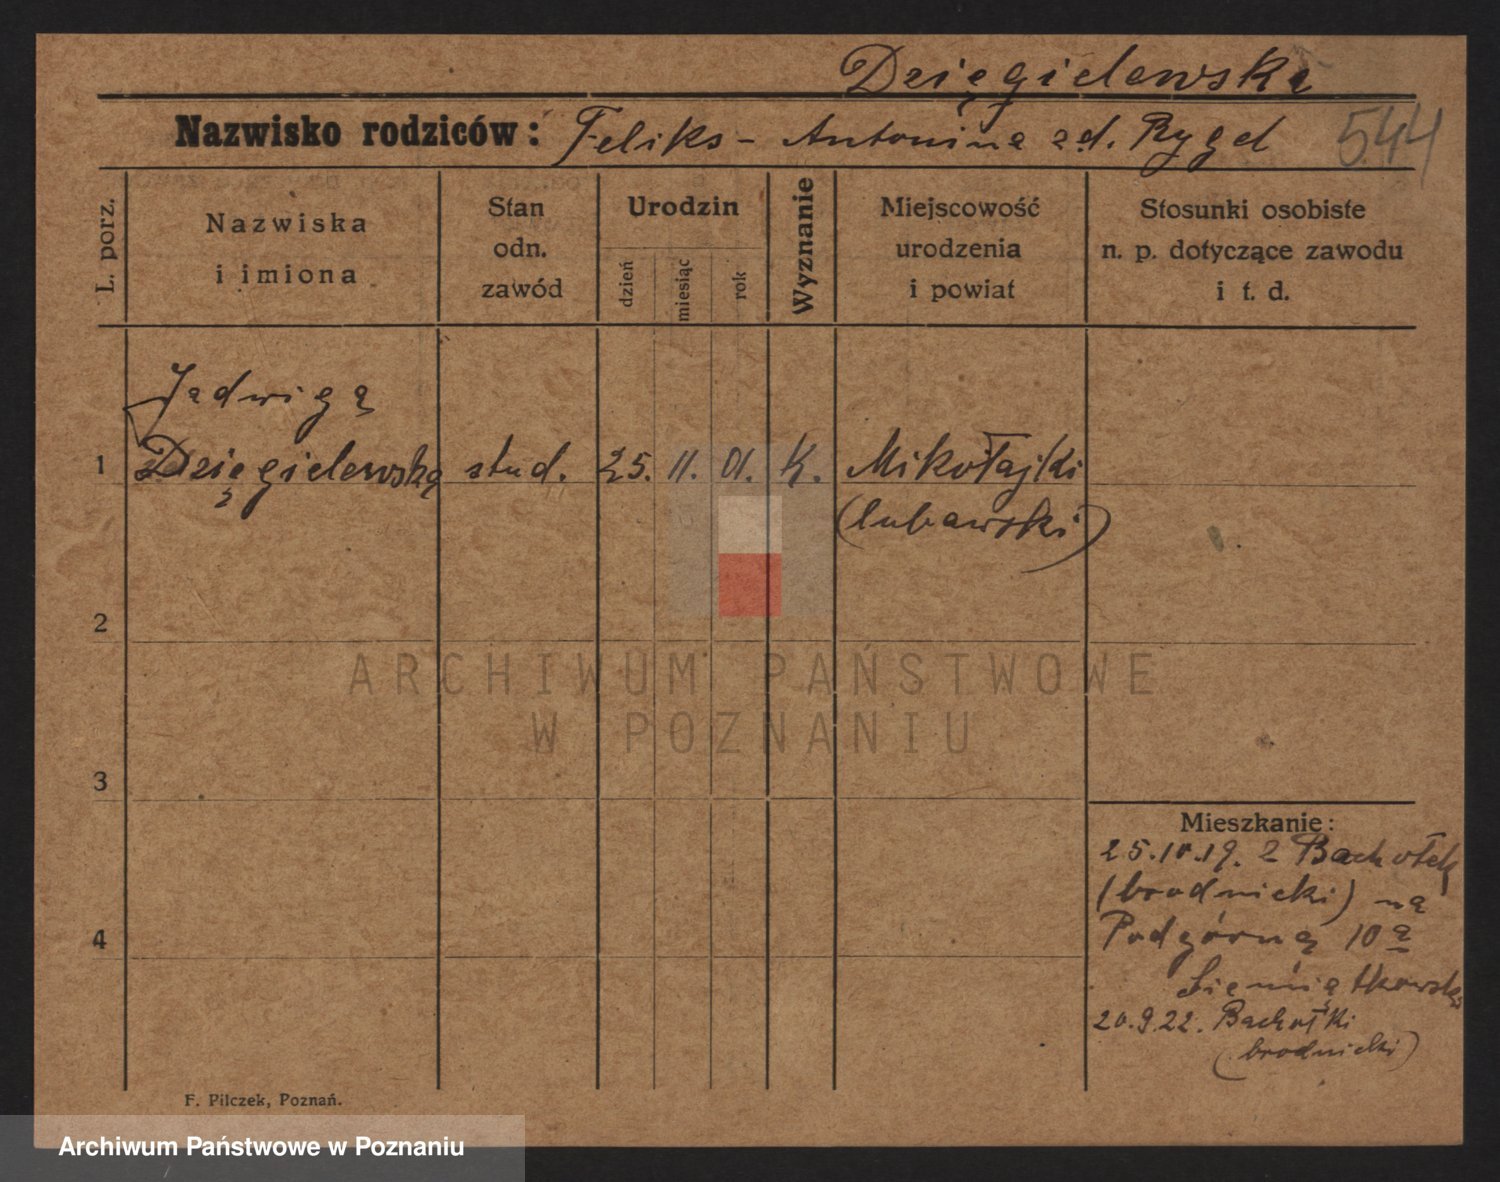 Dzięgielewska
Nazwisko rodziców: Feliks - Antonina zd. Rygel 544
L. porz.
Nazwiska
i imiona
Stan
odn.
zawód
Urodzin
dzień
miesiąc
rok
Wyznanie
Miejscowość
urodzenia
i powiat
Stosunki osobiste
n. p. dotyczące zawodu
i t. d.
Jadwiga
1 Dzięgielewska stud. 25. 11. 01. K. Mikołajki
(lubawski)
2
3
4
ARCHIWUM PAŃSTWOWE
W POZNANIU
Mieszkanie:
25.10.19. z
(brodnicki) na
Podgórną 10a
20.9.22. Bachotki
(brodnicki)
F. Pilczek, Poznań.
Archiwum Państwowe w Poznaniu